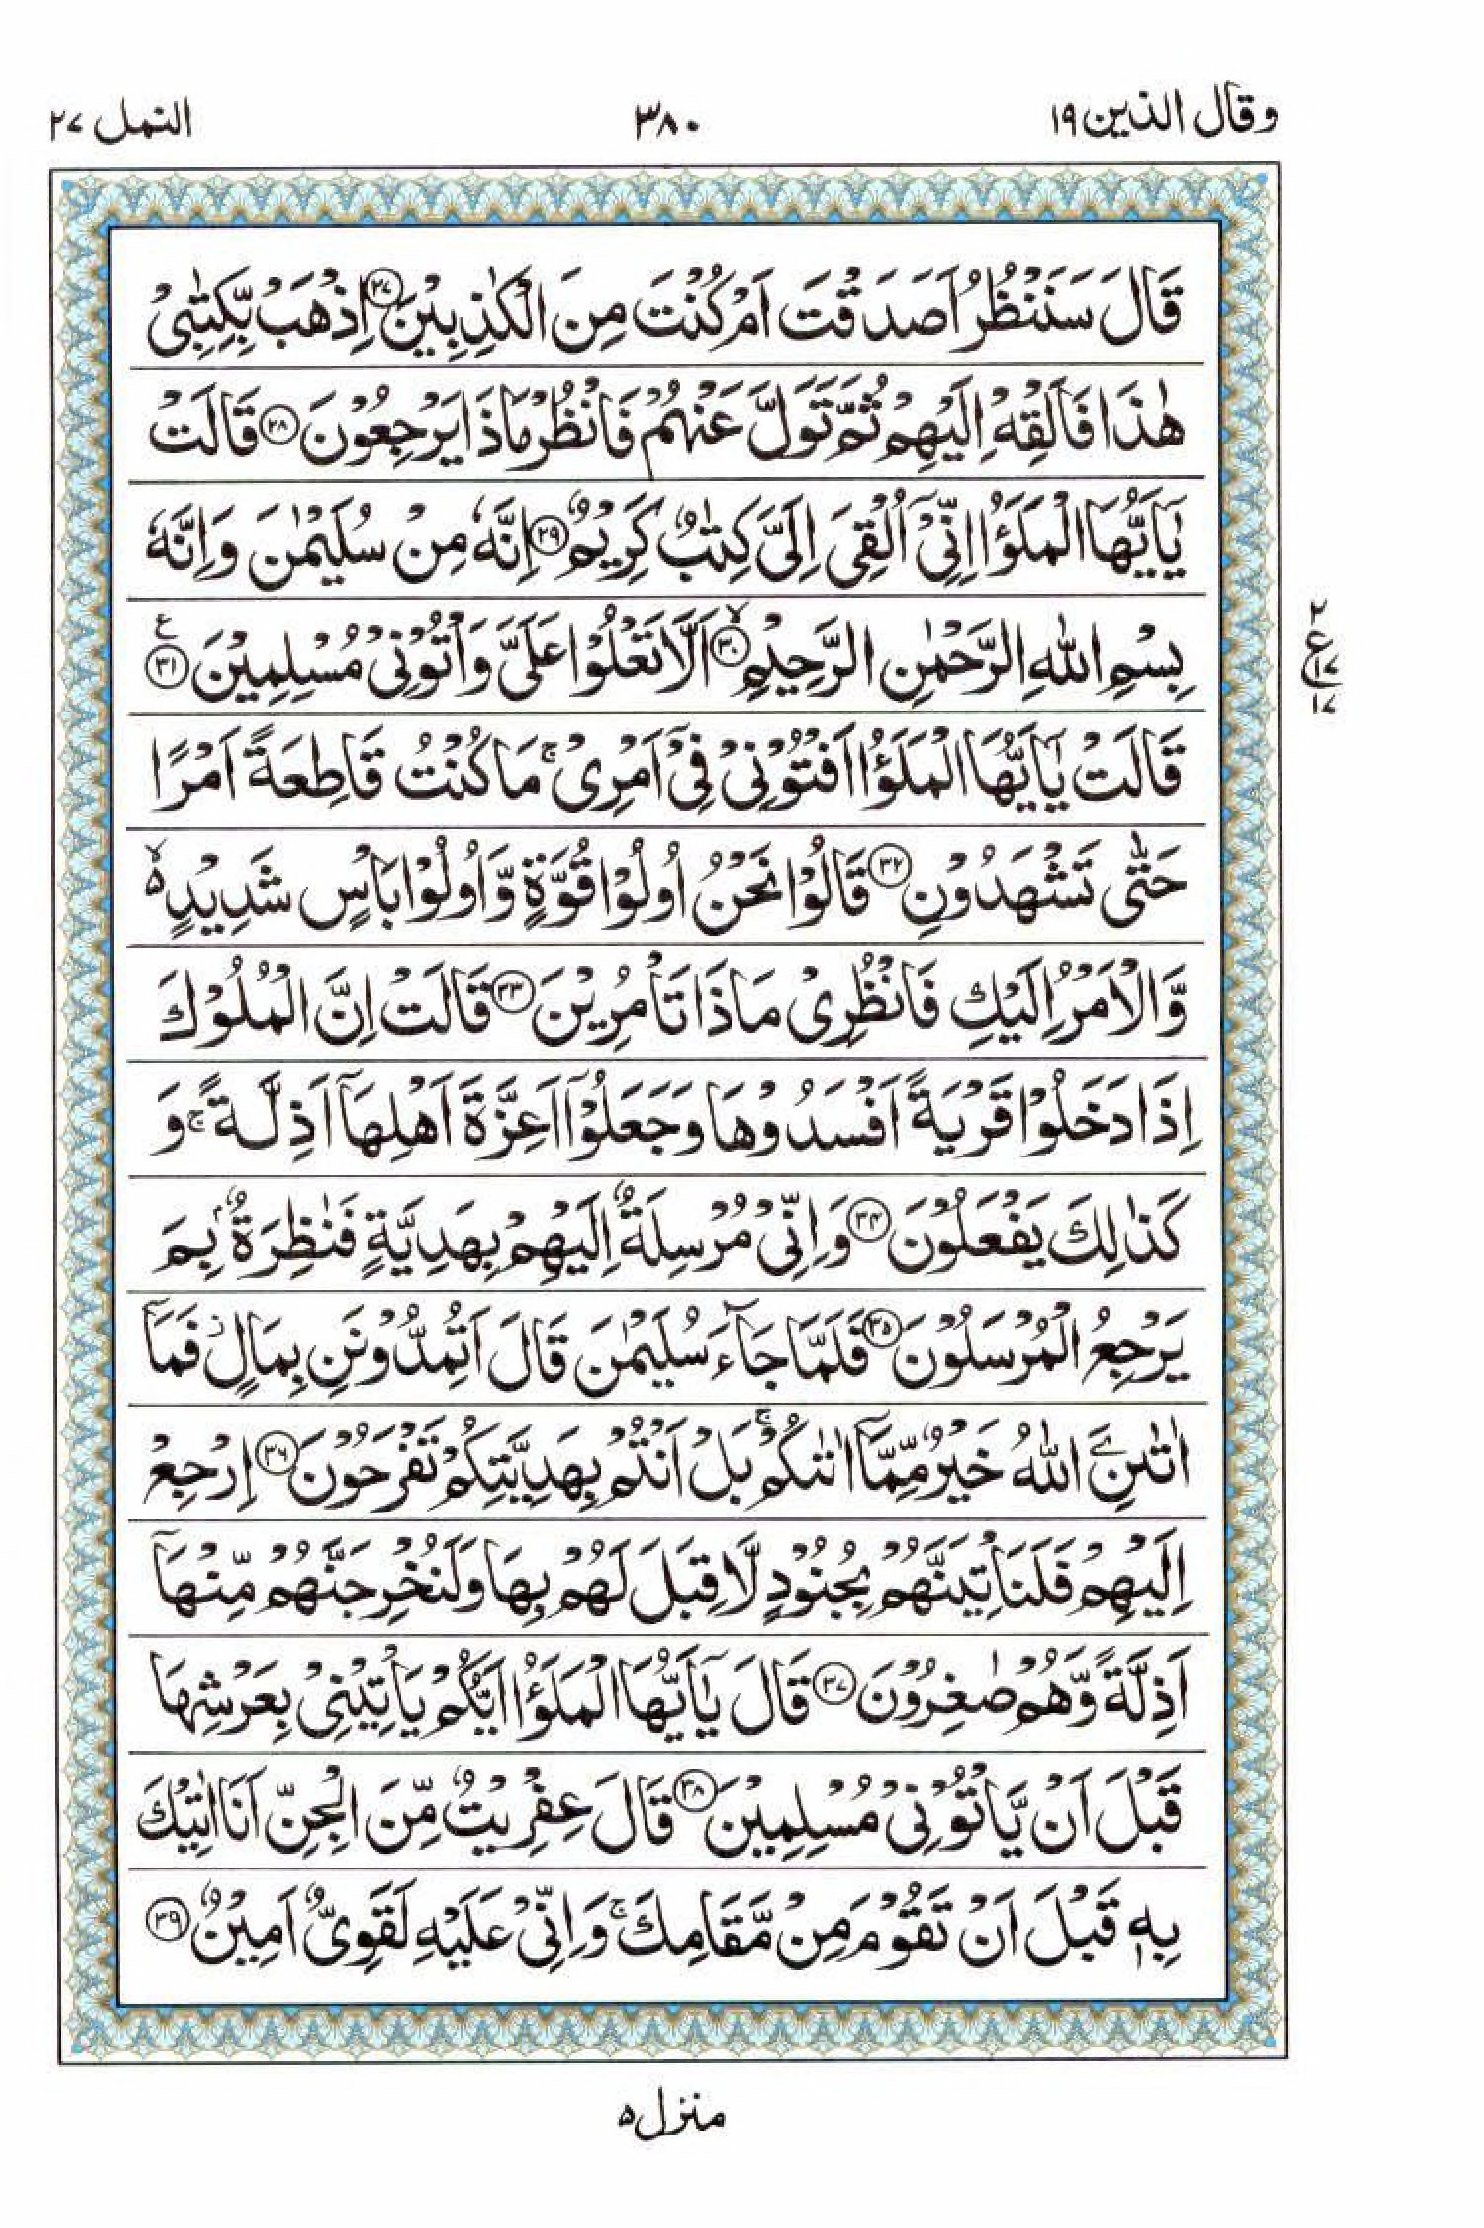 وقال الذين ١٩
٣٨٠
النمل ٢٧
قَالَ سَنَنْظُرُ اَصَدَقْتَ اَمْ كُنْتَ مِنَ الْكٰذِبِيْنَ ٢٧ اِذْهَبْ بِّكِتٰبِيْ
هٰذَا فَاَلْقِهْ اِلَيْهِمْ ثُمَّ تَوَلَّ عَنْهُمْ فَانْظُرْ مَاذَا يَرْجِعُوْنَ ٢٨ قَالَتْ
يٰٓاَيُّهَا الْمَلَؤُا اِنِّيْٓ اُلْقِيَ اِلَيَّ كِتٰبٌ كَرِيْمٌ ٢٩ اِنَّهٗ مِنْ سُلَيْمٰنَ وَاِنَّهٗ
بِسْمِ اللّٰهِ الرَّحْمٰنِ الرَّحِيْمِ ٣٠ۙ اَلَّا تَعْلُوْا عَلَيَّ وَاْتُوْنِيْ مُسْلِمِيْنَ ٣١ ع
قَالَتْ يٰٓاَيُّهَا الْمَلَؤُا اَفْتُوْنِيْ فِيْٓ اَمْرِيْ ۚ مَا كُنْتُ قَاطِعَةً اَمْرًا
حَتّٰى تَشْهَدُوْنِ ٣٢ قَالُوْا نَحْنُ اُولُوْا قُوَّةٍ وَّاُولُوْا بَاْسٍ شَدِيْدٍ ۙ۵
وَّالْاَمْرُ اِلَيْكِ فَانْظُرِيْ مَاذَا تَاْمُرِيْنَ ٣٣ قَالَتْ اِنَّ الْمُلُوْكَ
اِذَا دَخَلُوْا قَرْيَةً اَفْسَدُوْهَا وَجَعَلُوْٓا اَعِزَّةَ اَهْلِهَآ اَذِلَّةً ۚ وَ
كَذٰلِكَ يَفْعَلُوْنَ ٣٤ وَاِنِّيْ مُرْسِلَةٌ اِلَيْهِمْ بِهَدِيَّةٍ فَنٰظِرَةٌۢ بِمَ
يَرْجِعُ الْمُرْسَلُوْنَ ٣٥ فَلَمَّا جَآءَ سُلَيْمٰنَ قَالَ اَتُمِدُّوْنَنِ بِمَالٍ ز فَمَآ
اٰتٰىنِۦَ اللّٰهُ خَيْرٌ مِّمَّآ اٰتٰىكُمْ ۚ بَلْ اَنْتُمْ بِهَدِيَّتِكُمْ تَفْرَحُوْنَ ٣٦ اِرْجِعْ
اِلَيْهِمْ فَلَنَاْتِيَنَّهُمْ بِجُنُوْدٍ لَّا قِبَلَ لَهُمْ بِهَا وَلَنُخْرِجَنَّهُمْ مِّنْهَآ
اَذِلَّةً وَّهُمْ صٰغِرُوْنَ ٣٧ قَالَ يٰٓاَيُّهَا الْمَلَؤُا اَيُّكُمْ يَاْتِيْنِيْ بِعَرْشِهَا
قَبْلَ اَنْ يَّاْتُوْنِيْ مُسْلِمِيْنَ ٣٨ قَالَ عِفْرِيْتٌ مِّنَ الْجِنِّ اَنَا اٰتِيْكَ
بِهٖ قَبْلَ اَنْ تَقُوْمَ مِنْ مَّقَامِكَ ۚ وَاِنِّيْ عَلَيْهِ لَقَوِيٌّ اَمِيْنٌ ٣٩
٢
ع
١٧
١٧
منزل ۵